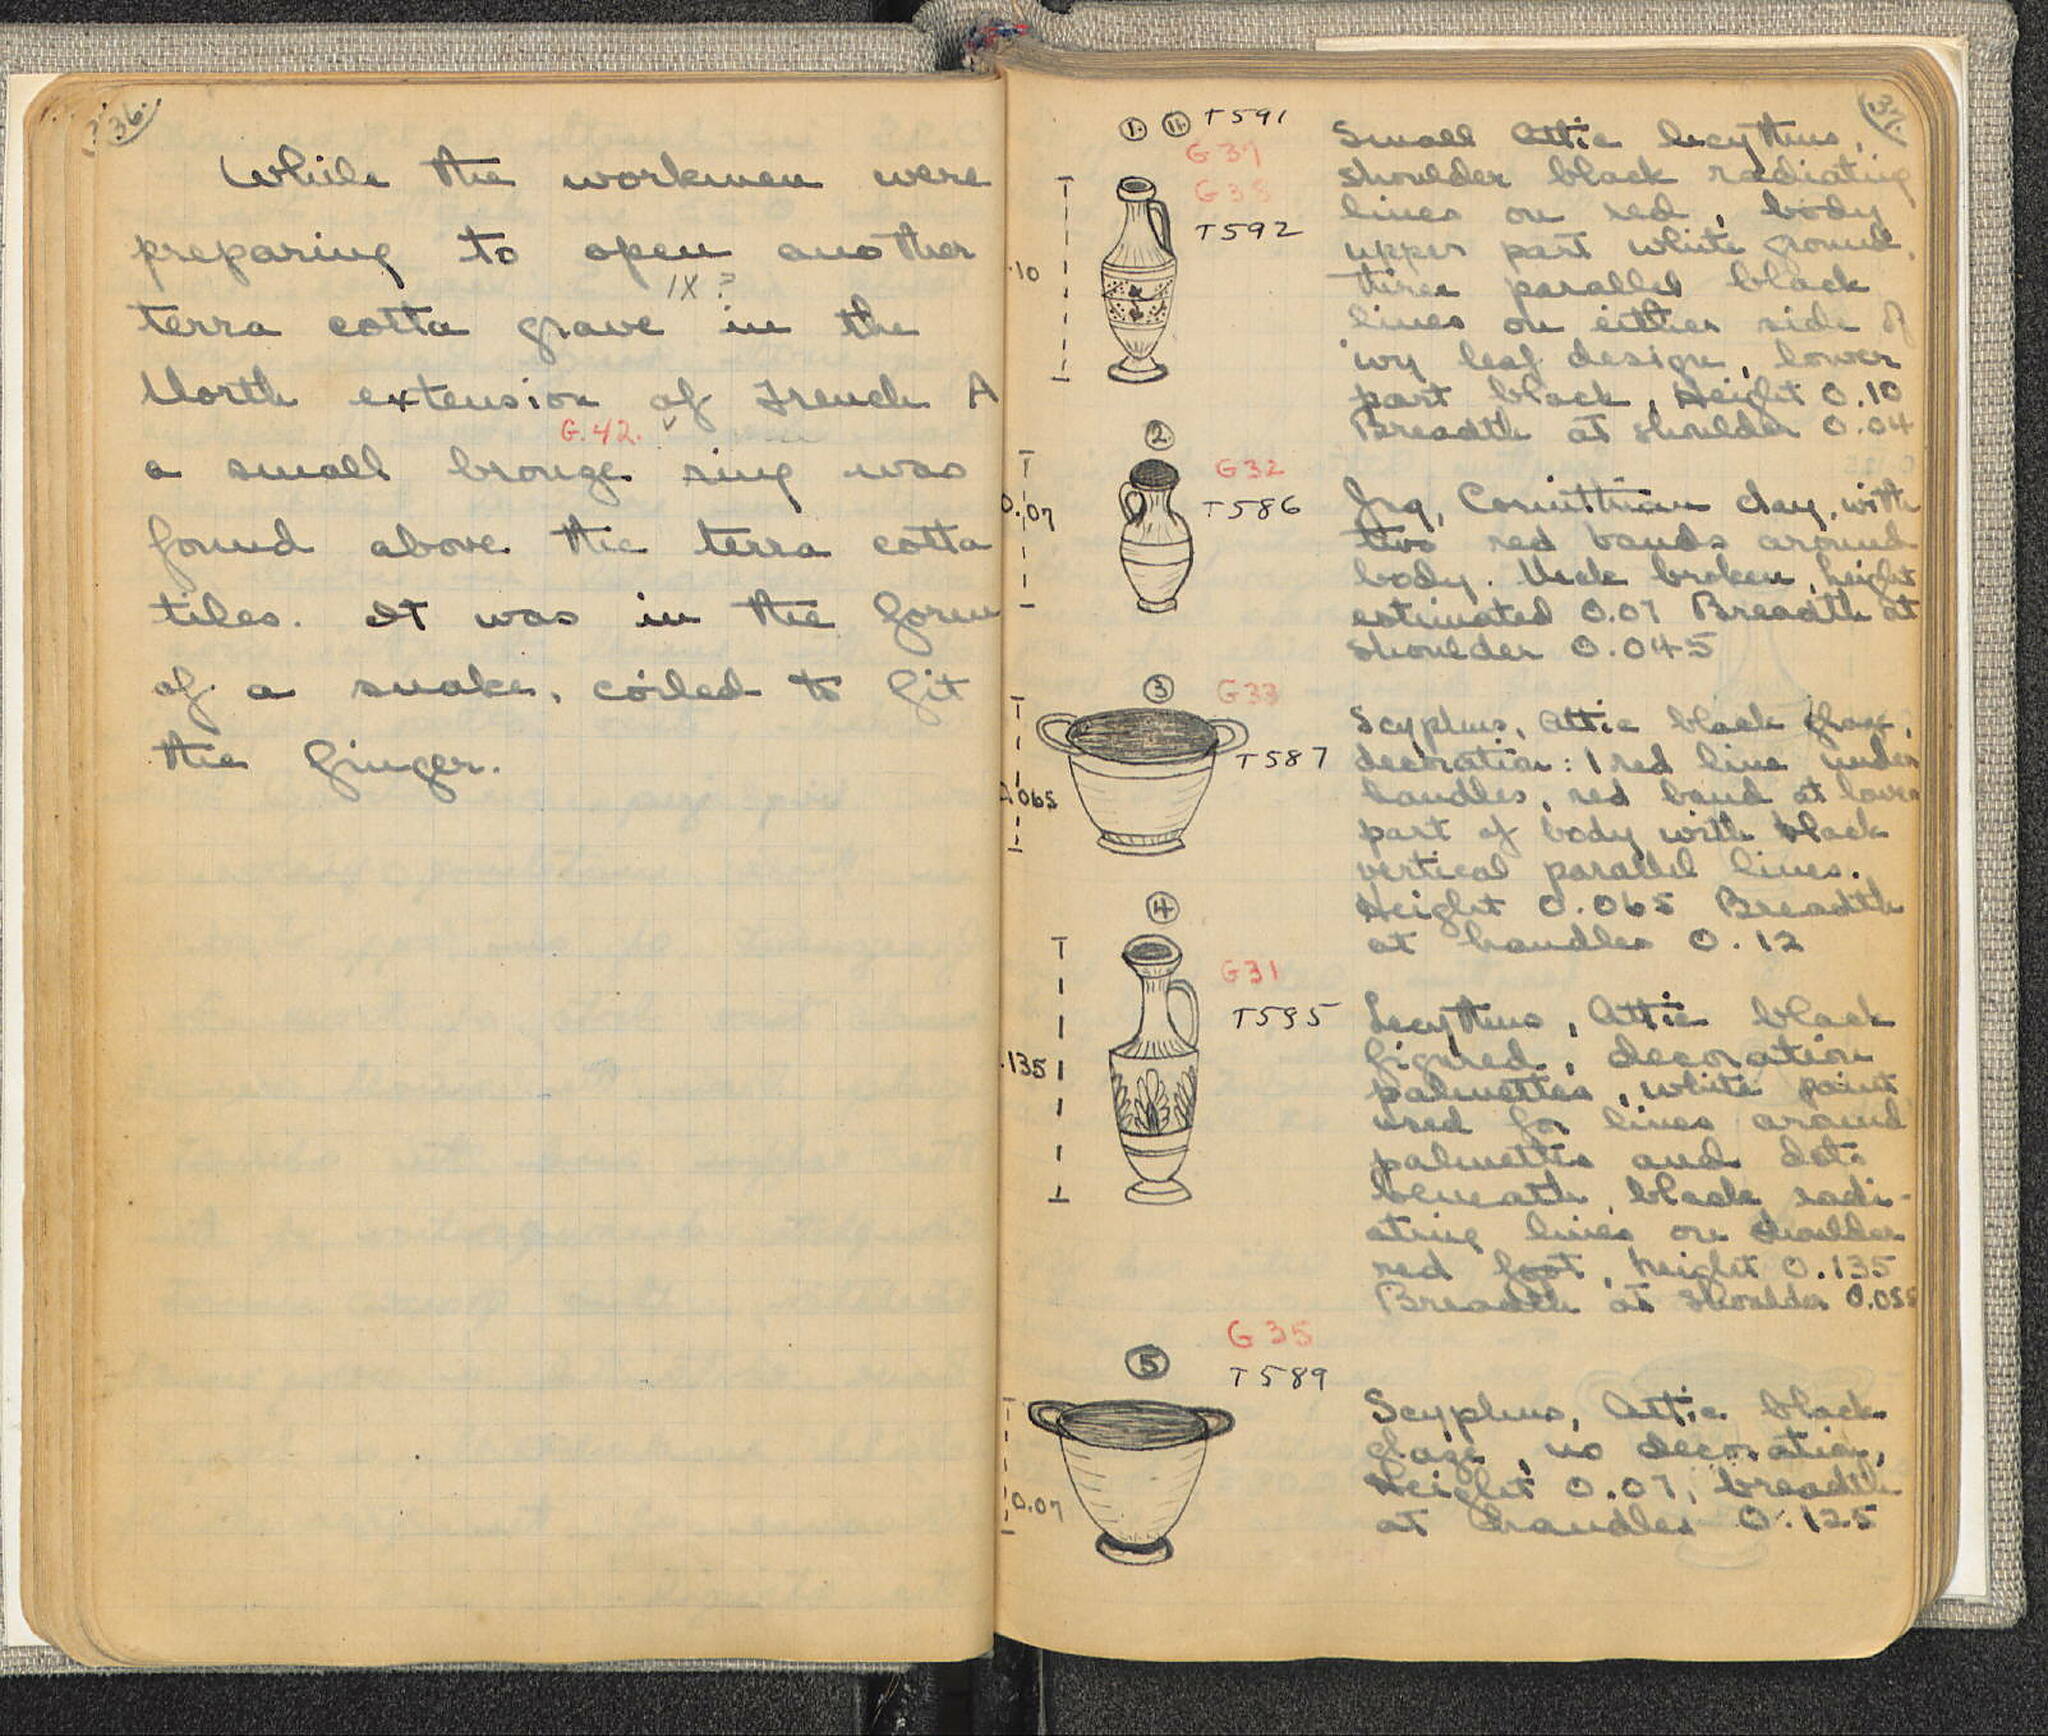 36.
While the workmen were
preparing to open another
IX?
terra cotta grave in the
North extension of Trench A
G.42.
a small bronze ring was
found above the terra cotta
tiles. It was in the form
of a snake, coiled to fit
the finger.
37.
1. 11. T591
G37
G38
T592
.10
Small Attic lecythus,
shoulder black radiating
lines on red, body
upper part white ground,
three parallel black
lines on either side of
ivy leaf design, lower
part black, Height 0.10
Breadth at shoulder 0.04
2.
G32
T586
0.07
Jug, Corinthian clay, with
two red bands around
body. Neck broken, height
estimated 0.07 Breadth at
shoulder 0.045
3
G33
T587
.065
Scyphus, Attic black glaze,
decoration: 1 red line under
handles, red band at lower
part of body with black
vertical parallel lines.
Height 0.065 Breadth
at handles 0.12
4
G31
T595
.135
Lecythus, Attic black
figured, decoration
palmettes, white paint
used for lines around
palmettes and dots
beneath, black radi-
ating lines on shoulder
red foot, height 0.135
Breadth at shoulder 0.055
G35
5
T589
0.07
Scyphus, Attic black
glaze, no decoration,
Height 0.07, breadth
at handles 0.125